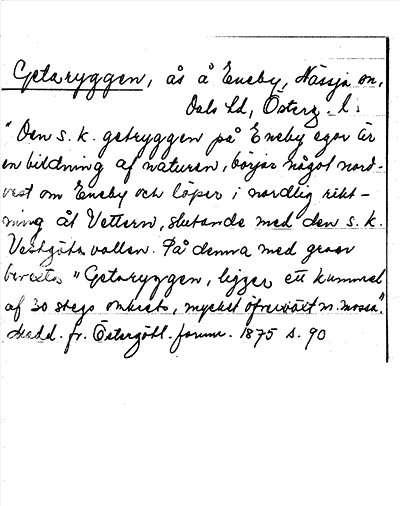 Getaryggen, ås å Eneby, Nässja sn,
Dals hd, Österg. l.
"Den s.k. getryggen på Eneby egor är
en bildning af naturen, börjar något nord-
vest om Eneby och löper i nordlig rikt-
ning åt Vettern, slutande med den s.k.
Vestgöta vallen. På denna med gräs
bevexta "Getaryggen, ligger ett kummel
af 30 stegs omkrets, mycket öfverväxt m. mossa".
Medd. fr. Östergötl. fornm. 1875 s. 90